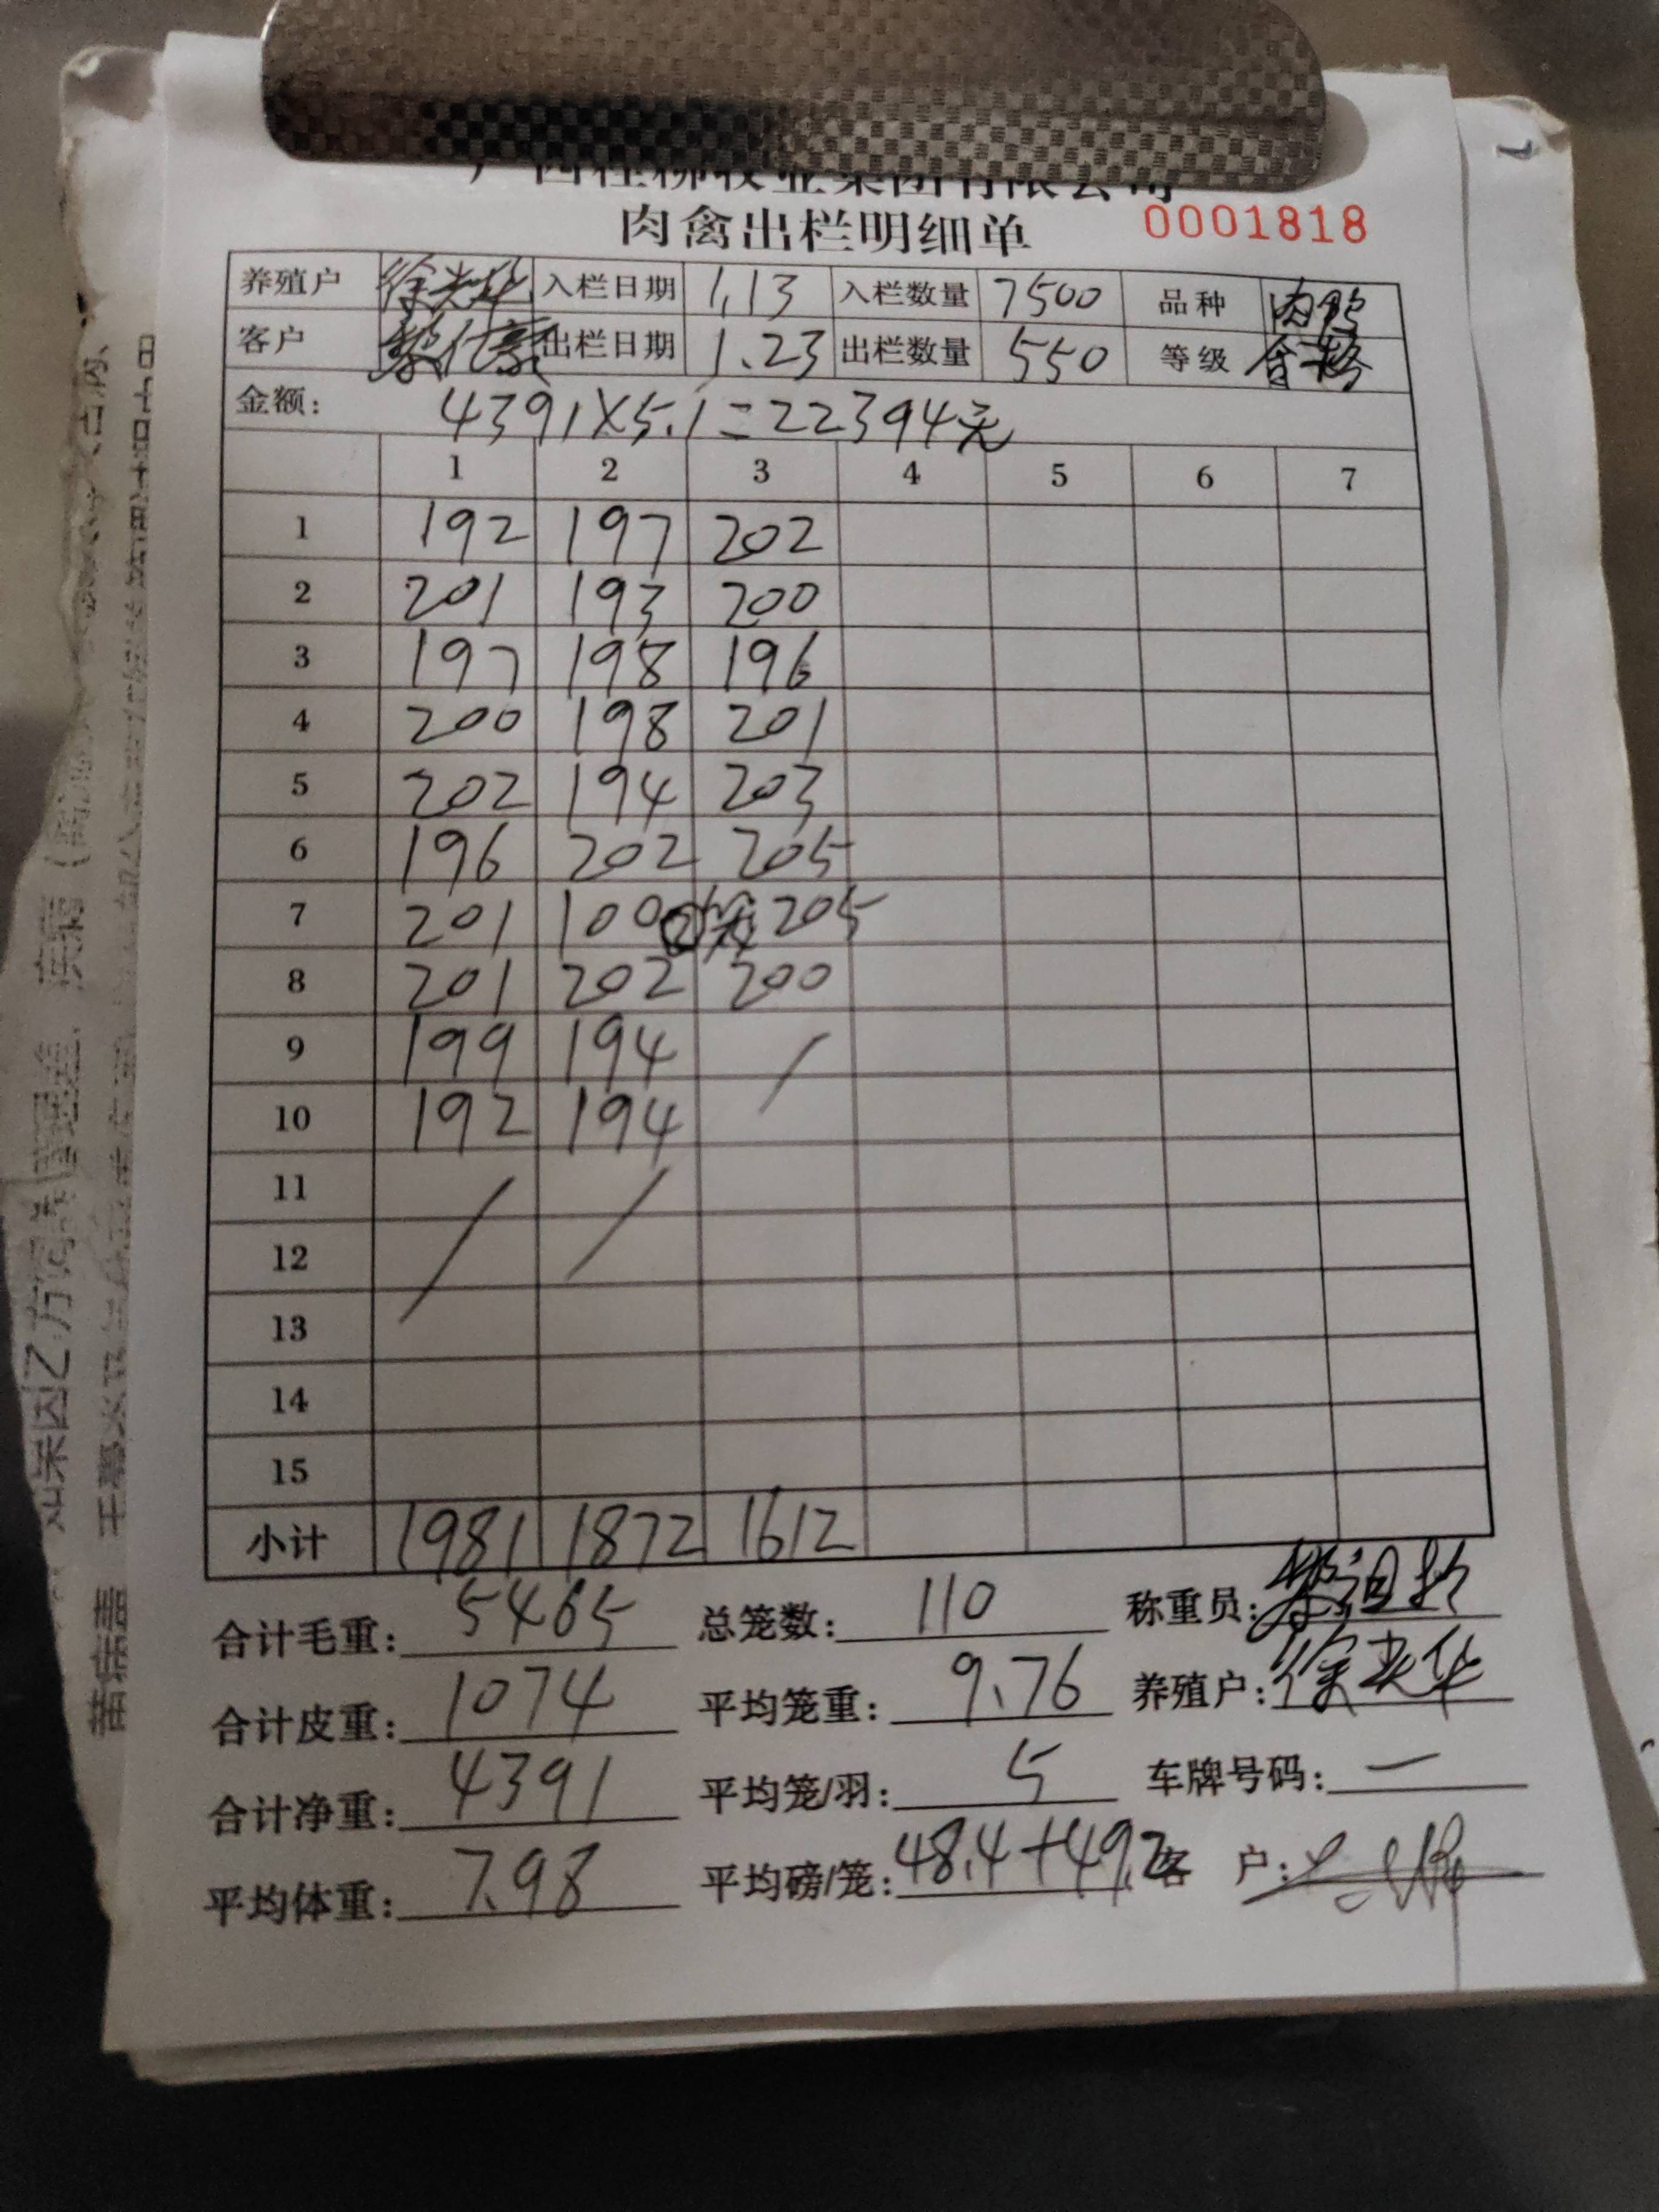 广西桂柳牧业集团有限公司
肉禽出栏明细单 0001818
养殖户 徐光华 入栏日期 1.13 入栏数量 7500 品种 肉鸭
客户 出栏日期 1.23 出栏数量 550 等级 合格
金额: 4391×5.1=22394元
1 2 3 4 5 6 7
1 192 197 202
2 201 193 200
3 197 198 196
4 200 198 201
5 202 194 203
6 196 202 205
7 201 100 ②笼 205
8 201 202 200
9 199 194 /
10 192 194
11 / /
12
13
14
15
小计 1981 1872 1612
合计毛重: 5465 总笼数: 110 称重员:
合计皮重: 1074 平均笼重: 9.76 养殖户: 徐光华
合计净重: 4391 平均笼/羽: 5 车牌号码: 一
平均体重: 7.98 平均磅/笼: 48.4+49.2 客 户: